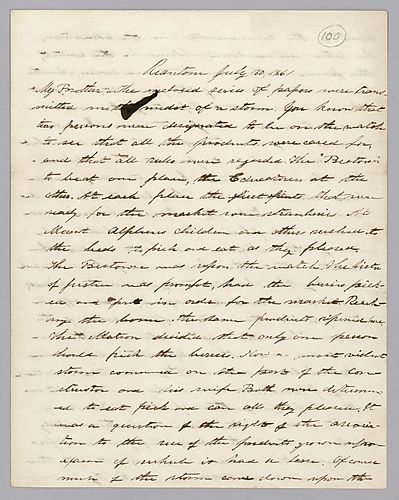 100
Reantom July 30, 1861
My Brother The enclosed series of papers were trans
mitted midst of a storm. You know that
two persons were designated to be on the watch
to see that all the products were cared for,
and that all rules were regarded. The
to be at one place, the at the
other. At each place the first fruits that were
ready for the market were strawberries. At
Mount children and others rushed to
the beds to pick and eat as they pleased,
The was upon the watch. The
of justice was prompt, had the berries pick
ed and put in order for the market. Reach
ing the home the same products
The Matron decided that only one person
should pick the berries. Now a most violent
storm commenced on the part of the
and his wife Both were determin
ed to eat pick and can all they please. It
was a question of the right of the associa
tion to the use of the products grown upon
a farm of which it had a lease. Of course
much of the storm came down upon the